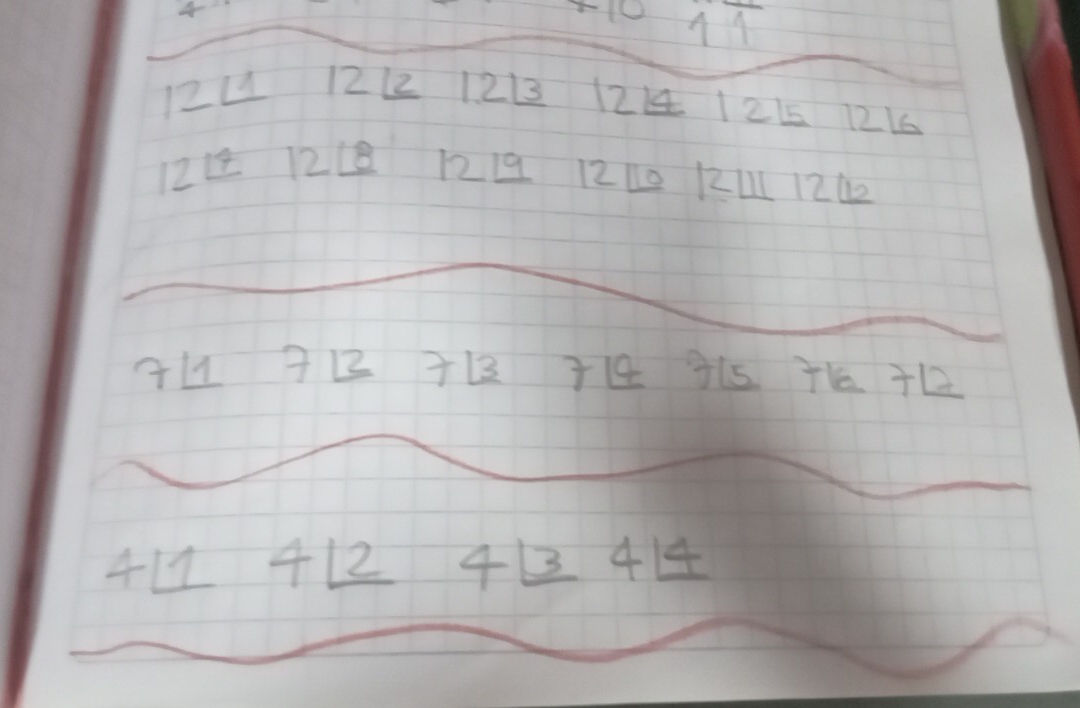 +10 11
12⌊1 12⌊2 12⌊3 12⌊4 12⌊5 12⌊6
12⌊7 12⌊8 12⌊9 12⌊10 12⌊11 12⌊12
7⌊1 7⌊2 7⌊3 7⌊4 7⌊5 7⌊6 7⌊7
4⌊1 4⌊2 4⌊3 4⌊4